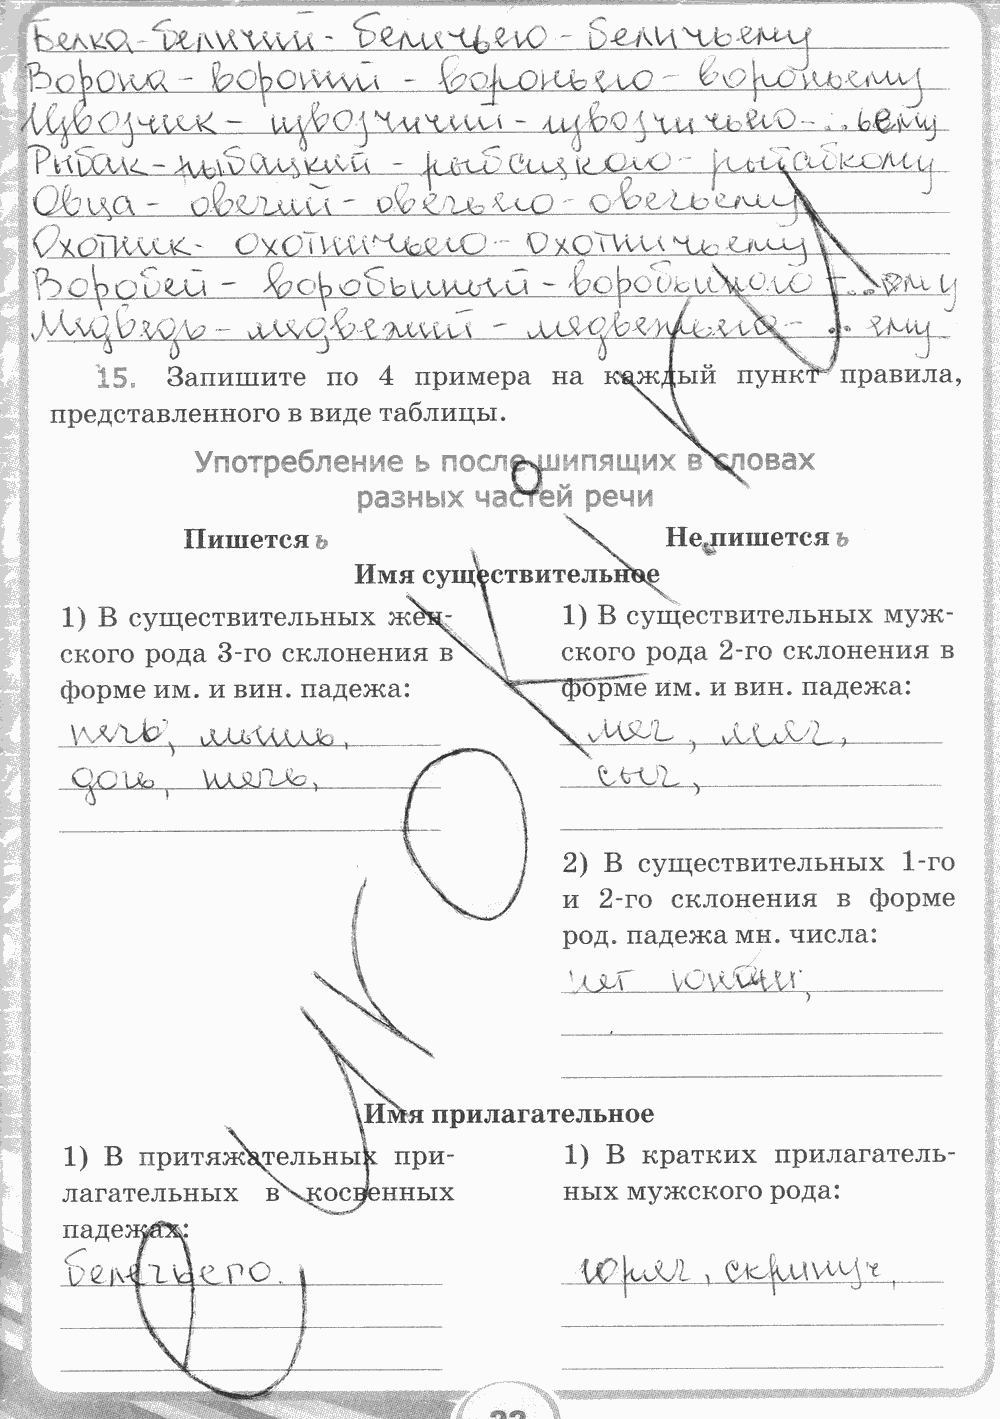 Белка - беличий - беличьего - беличьему
Ворона - вороний - вороньего - вороньему
Извозчик - извозчичий - извозчичьего - ..ьему
Рыбак - рыбацкий - рыбацкого -
Овца - овечий - овечьего - овечьему
Охотник - охотничьего - охотничьему
Воробей - воробьиный - воробьиного - ...ому
Медведь - медвежий - медвежьего - ... ему
15. Запишите по 4 примера на каждый пункт правила,
представленного в виде таблицы.
Употребление ь после шипящих в словах
разных частей речи
Пишется ь
Не пишется ь
Имя существительное
1) В существительных жен-
ского рода 3-го склонения в
форме им. и вин. падежа:
печь, мышь,
дочь, течь,
1) В существительных муж-
ского рода 2-го склонения в
форме им. и вин. падежа:
меч, мяч,
сыч,
2) В существительных 1-го
и 2-го склонения в форме
род. падежа мн. числа:
нет
Имя прилагательное
1) В притяжательных при-
лагательных в косвенных
падежах:
белечьего.
1) В кратких прилагатель-
ных мужского рода:
горяч, скрипуч,
33